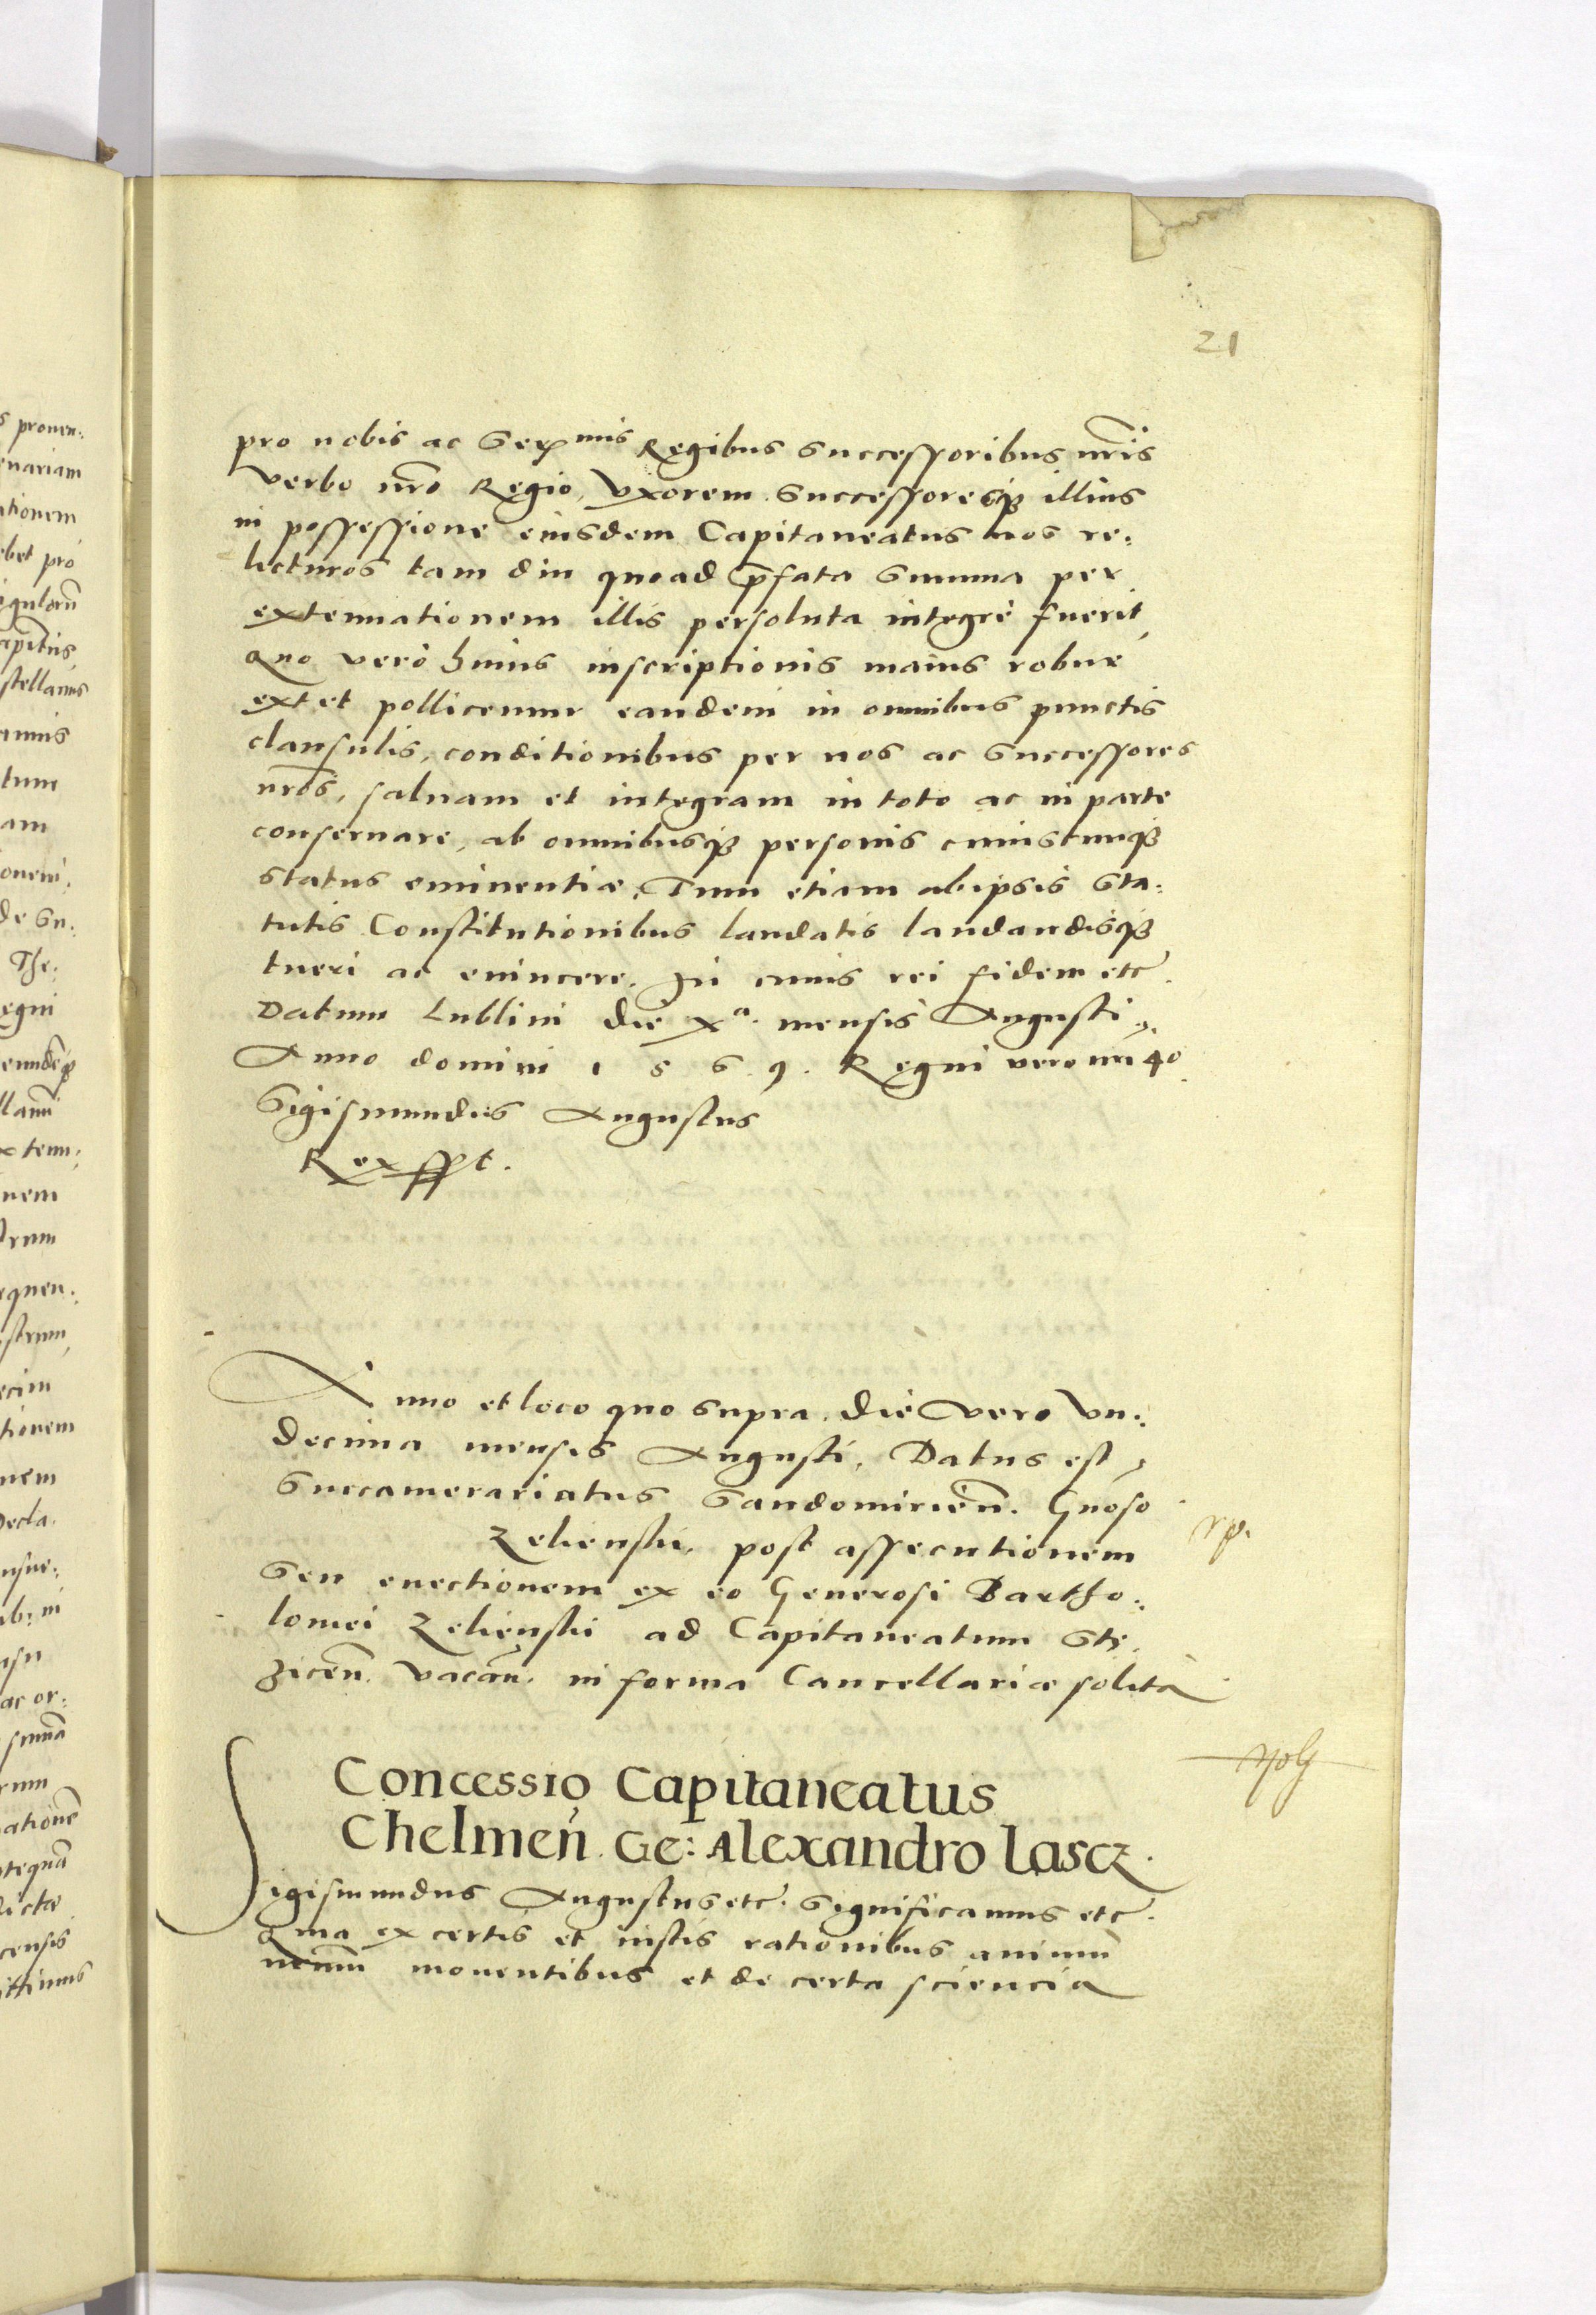 21
pro nobis ac Ser^mis Regibus successoribus nr̃is
verbo nr̃o Regio, vxorem successoresq; illius
in possessione eiusdem Capitaneatus nos re:
licturos tam diu quoad p̃fata summa per
extenuationem illis persoluta integrè fuerit,
Quo verò huius inscriptionis maius robur
extet pollicemur eandem in omnibus punctis
clausulis, conditionibus per nos ac successores
nr̃os, saluam et integram in toto ac in parte
conseruare, ab omnibusq; personis cuiuscunq;
status eminentiæ, Tum etiam ab ipsis sta:
tutis Constitutionibus laudatis laudandisq;
tueri ac euincere. In cuius rei fidem etc̃.
Datum Lublini die X^a. mensis Augusti,
Anno domini 1569. Regni vero nr̃i 40.
Sigismundus Augustus
Rex sspt.
Anno et loco quo supra, die vero vn:
decima mensis Augusti, Datus est,
Succamerariatus Sandomirieñ. Gnoso
Zelienski, post assecutionem
seu euectionem ex eo Generosi Bartho:
lomei Zelienski ad Capitaneatum Stę:
ziceñ. vacañ. in forma Cancellariæ solita
Concessio Capitaneatus
Chelmeñ. Ge: Alexandro Lascz.
Sigismundus Augustus etc̃. Significamus etc̃.
Quia ex certis et iustis rationibus animũ
nr̃um mouentibus et de certa sciencia
s prouen:
enariam
ationem
ebet pro
apitus,
stellanus
tum
am
de su:
The:
egni
nem
rum
equen:
strum,
ecim
tionem
nem
Decla:
ab: in
ac or:
rum
censis